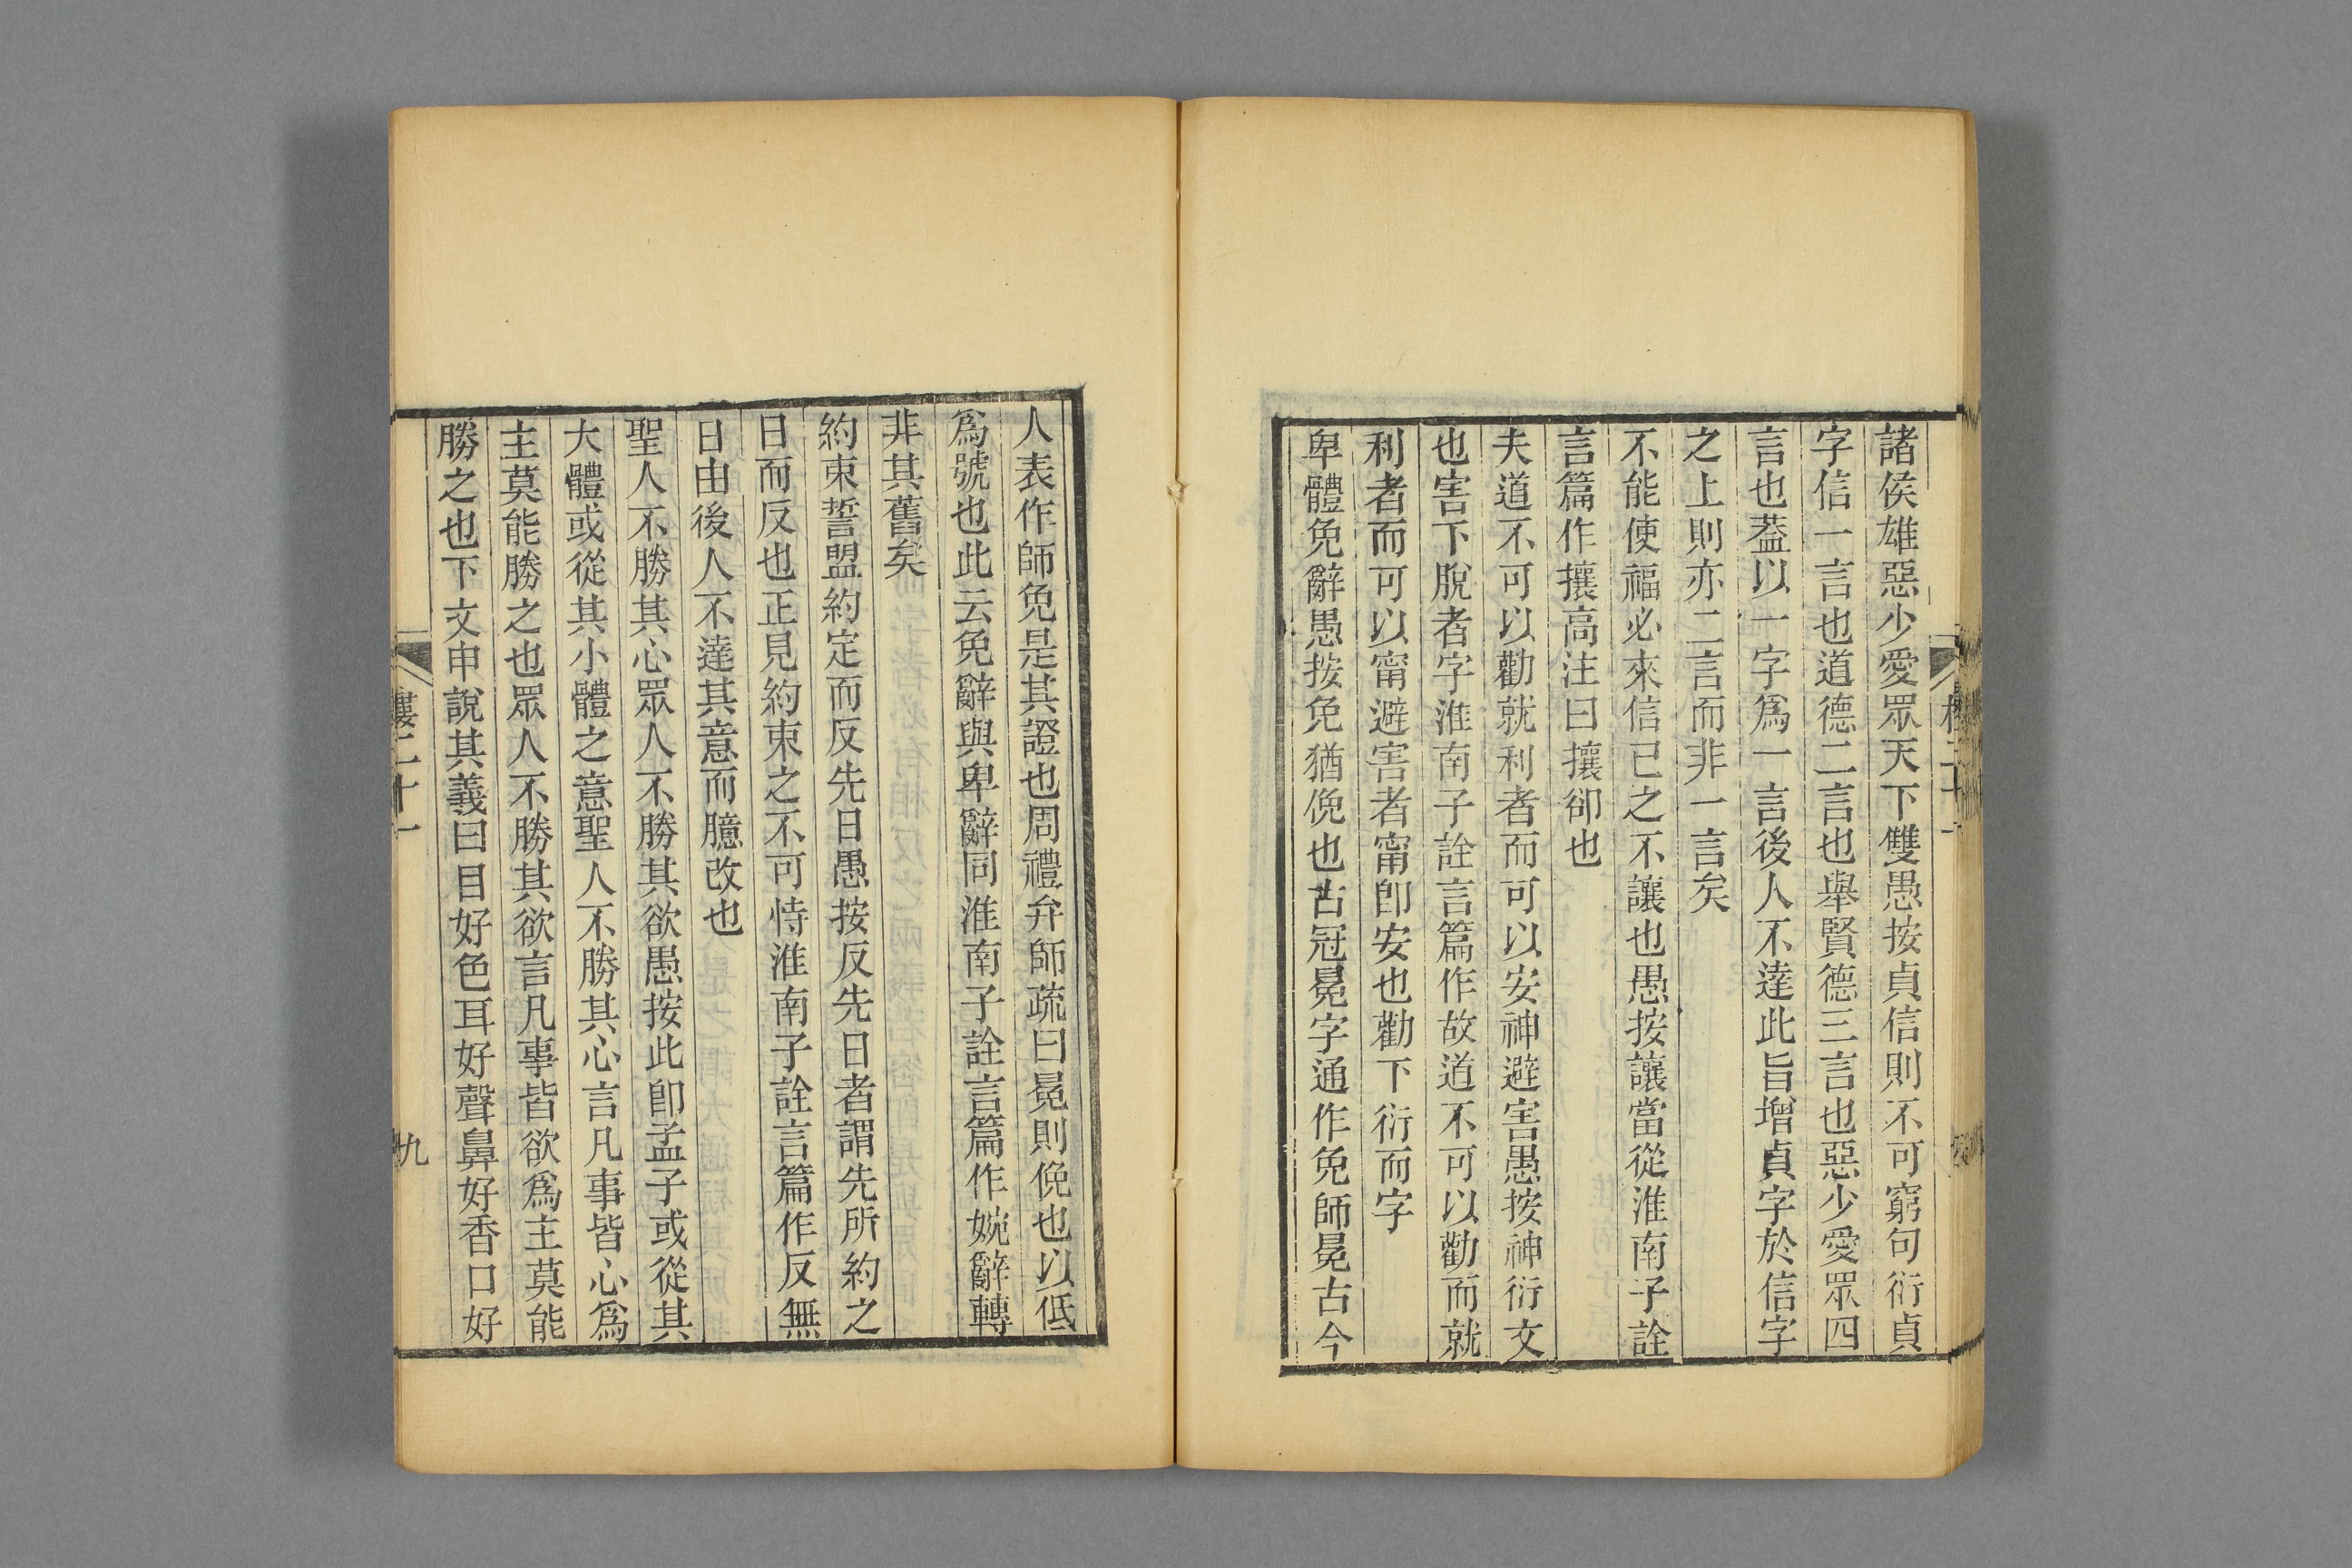 諸侯雄惡少愛眾天下雙愚按貞信則不可窮句衍貞
字信一言也道德二言也舉賢德三言也惡少愛眾四
言也蓋以一字爲一言後人不達此旨增貞字於信字
之上則亦二言而非一言矣
不能使福必來信已之不讓也愚按讓當從淮南子詮
言篇作攘高注曰攘卻也
夫道不可以勸就利者而可以安神避害愚按神衍文
也害下脫者字淮南子詮言篇作故道不可以勸而就
利者而可以甯避害者甯卽安也勸下衍而字
卑體免辭愚按免猶俛也古冠冕字通作免師冕古今
人表作師免是其證也周禮弁師疏曰冕則俛也以低
爲號也此云免辭與卑辭同淮南子詮言篇作婉辭轉
非其舊矣
約束誓盟約定而反先日愚按反先日者謂先所約之
日而反也正見約束之不可恃淮南子詮言篇作反無
日由後人不達其意而臆改也
聖人不勝其心眾人不勝其欲愚按此卽孟子或從其
大體或從其小體之意聖人不勝其心言凡事皆心爲
主莫能勝之也眾人不勝其欲言凡事皆欲爲主莫能
勝之也下文申說其義曰目好色耳好聲鼻好香口好
樓二十一
九